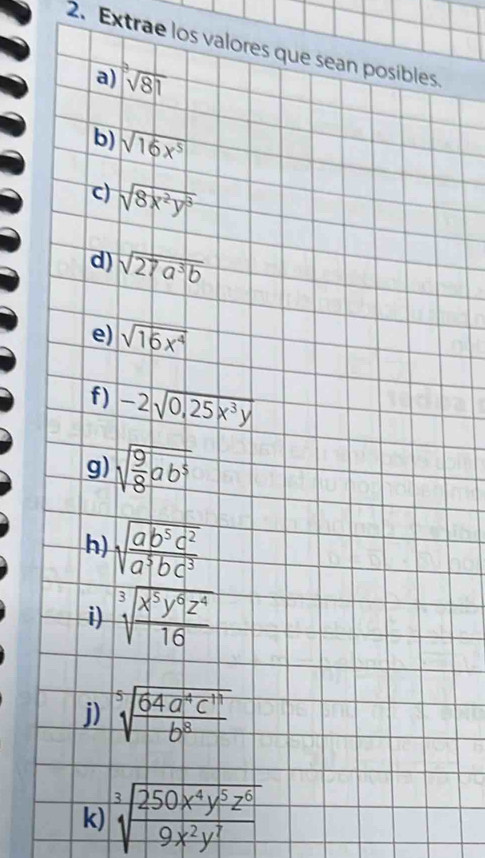 2. Extrae los valores que sean posibles.
a) ∛81
b) √(16x⁵)
c) √(8x²y³)
d) √(27a³b)
e) √(16x⁴)
f) −2√(0,25x³y)
g) √(9/8 ab⁵)
h) √(ab⁵c²/a³bc³)
i) ∛(x⁵y⁶z⁴/16)
j) ⁵√(64a⁴c¹¹/b⁸)
k) ∛(250x⁴y⁵z⁶/9x²y⁷)